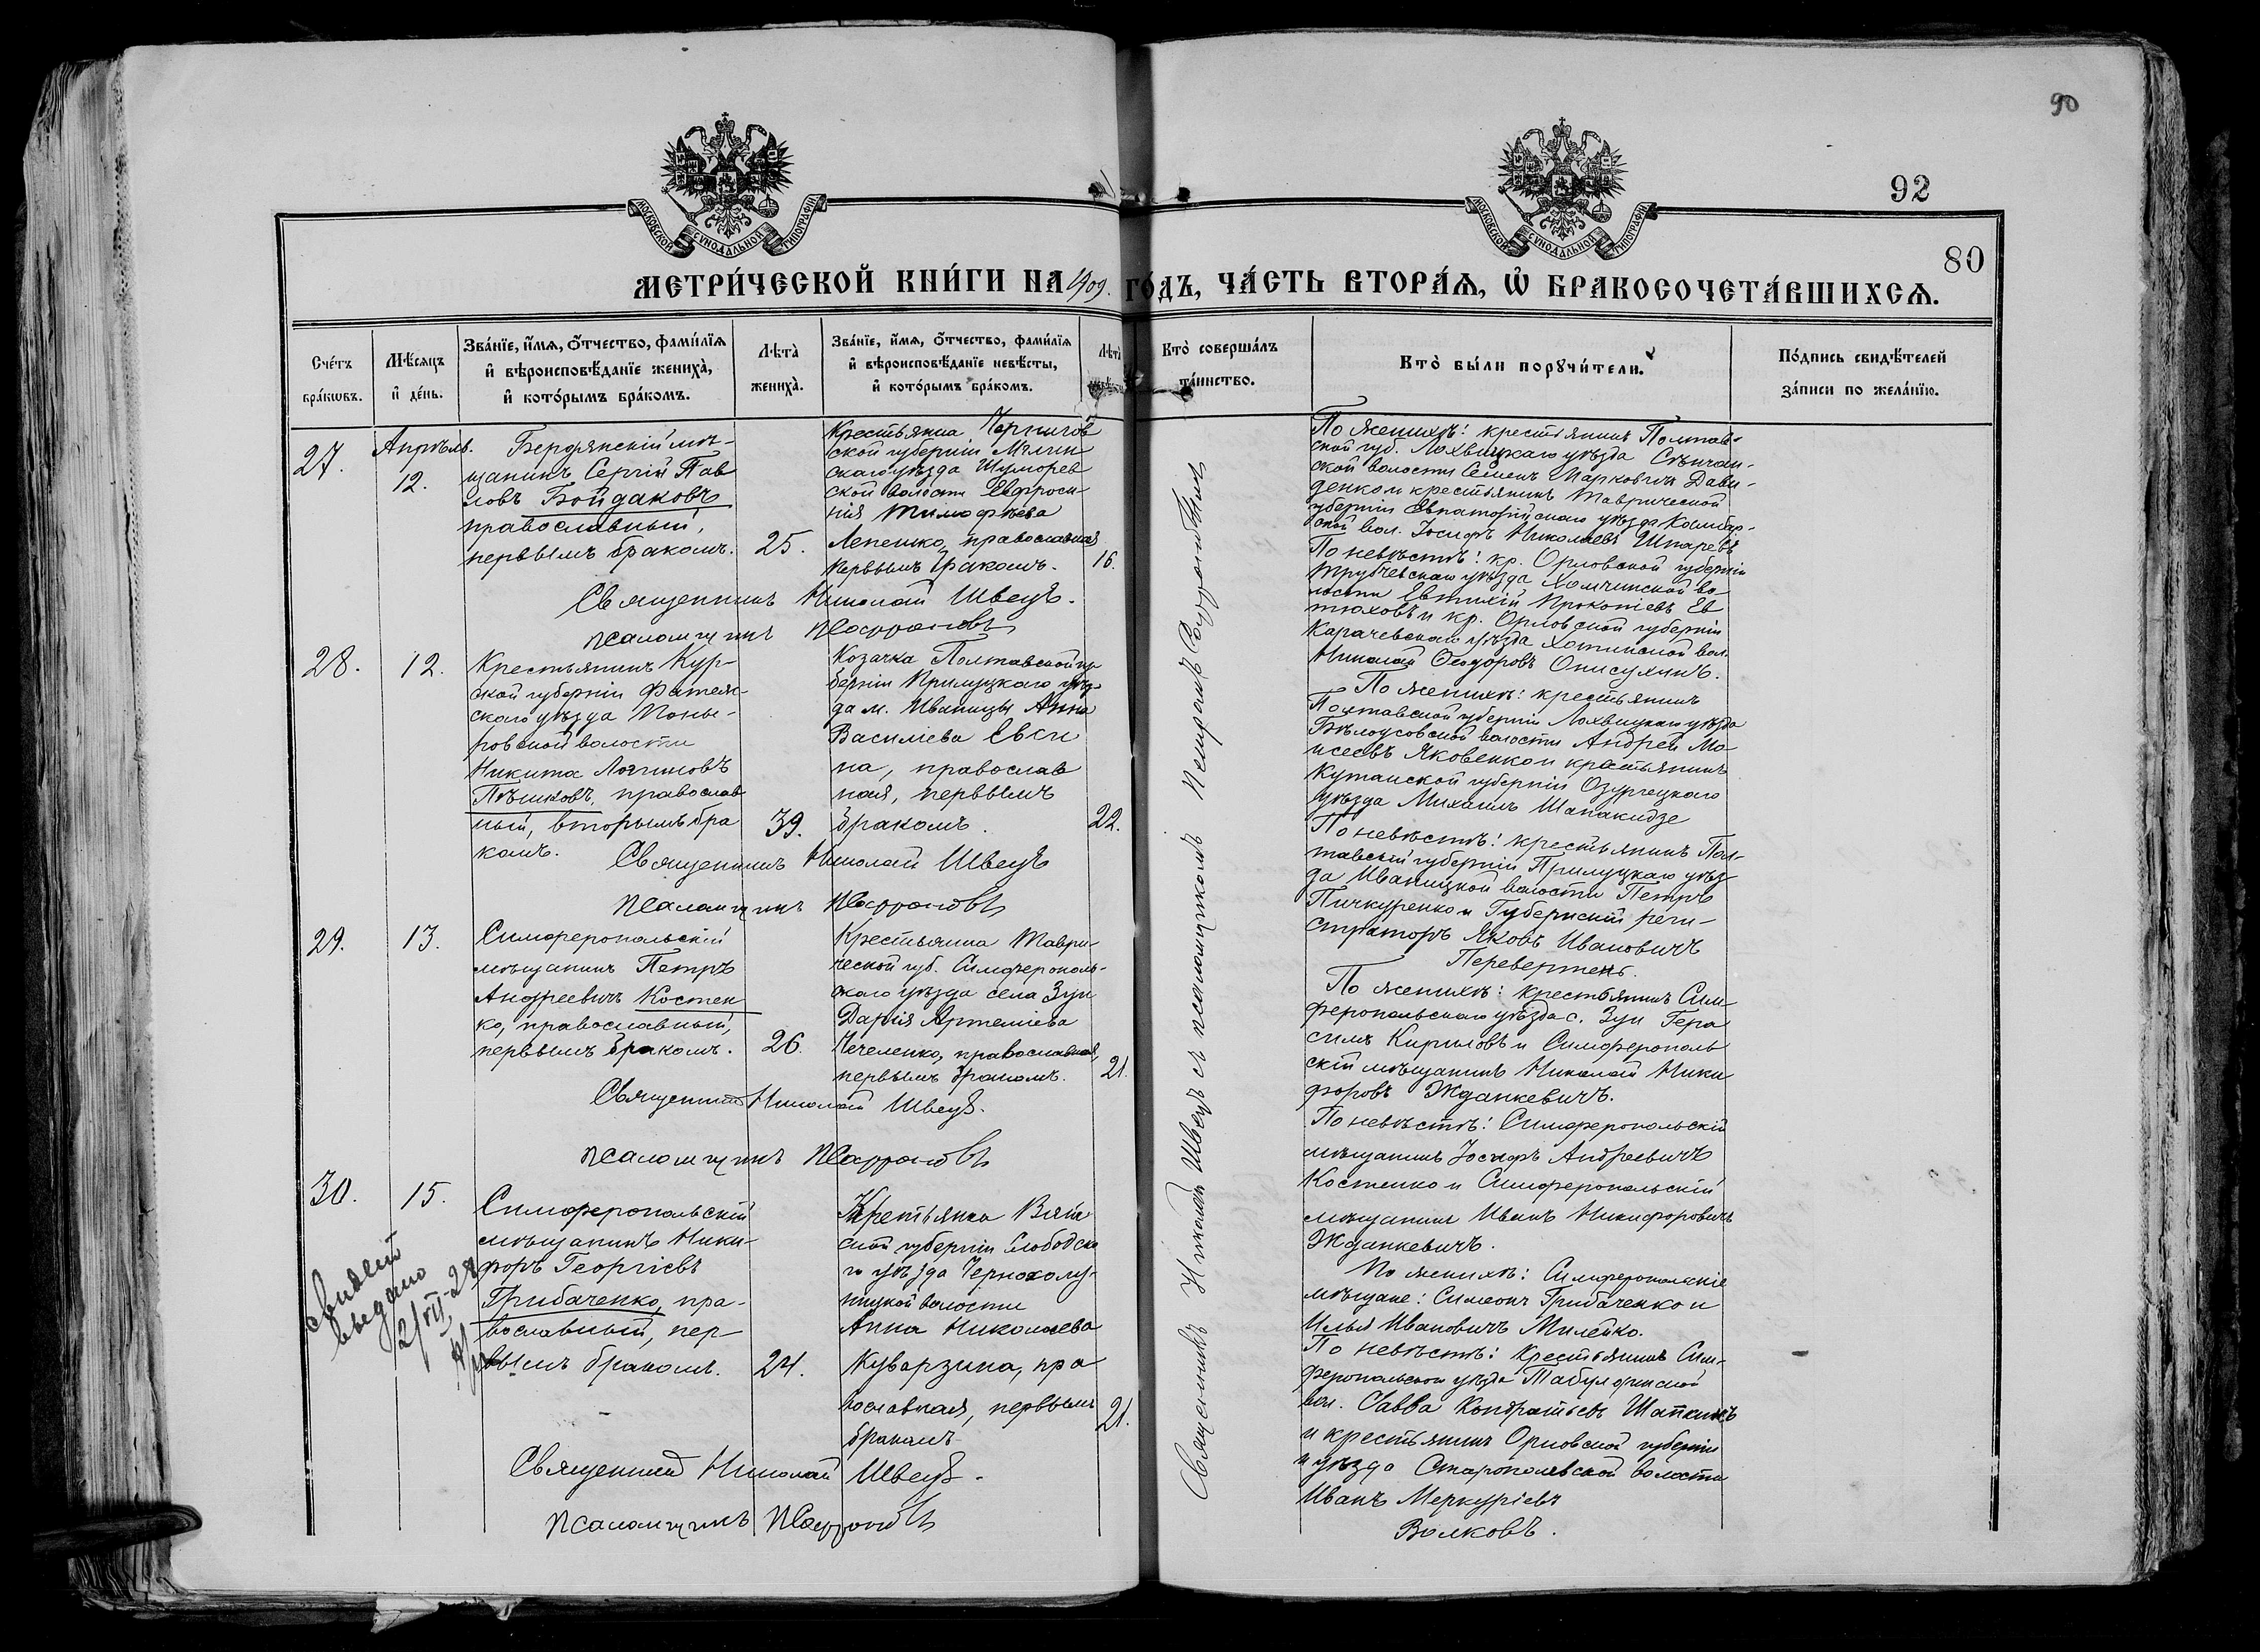 90
92
80
МОСКОВСКОЙ СѴНОДАЛЬНОЙ ТИПОГРАФІИ
МОСКОВСКОЙ СѴНОДАЛЬНОЙ ТИПОГРАФІИ
МЕТРИ́ЧЕСКОЙ КНИ́ГИ НА 1909. ГО́ДЪ, ЧА́СТЬ ВТОРА́Ѧ, Ѽ БРАКОСОЧЕТА́ВШИХСѦ.
Сче́тъ
бра́кѡвъ.
Мѣ́сяцъ
и҆ де́нь.
Зва́нїе, и҆́мя, ѻ҆́тчество, фами́лїя
и҆ вѣроисповѣ́данїе жениха̀,
и҆ кото́рымъ бра́комъ.
Лѣта̀
жениха̀.
Зва́нїе, и҆́мя, ѻ҆́тчество, фами́лїя
и҆ вѣроисповѣ́данїе невѣ́сты,
и҆ кото́рымъ бра́комъ.
Лѣта̀
невѣ́сты
Кто̀ соверша́лъ
та́инство.
Кто̀ бы́ли порꙋчи́тели.
По́дпись свидѣ́телей
за́писи по жела́нїю.
27.
Апрѣль.
12.
Бердянскій мѣ-
щанинъ Сергій Пав
ловъ Бойдаковъ
православный,
первымъ бракомъ.
25.
Крестьянка Чернигов
ской губерніи Мглин
скаго уѣзда Шуморов
ской волости Евфроси-
нія Тимофѣева
Лепешко, православная
первымъ бракомъ.
16.
Священникъ Николай Швецъ.
псаломщикъ ПСафроновъ
По женихѣ: крестьянинъ Полтав-
ской губ. Лохвицкаго уѣзда Сѣнчан-
ской волости Семенъ Марковичъ Дави-
денко и крестьянинъ Таврической
губерніи Евпаторійскаго уѣзда Камбар-
ской вол. Іосифъ Николаевъ Шпаревъ
По невѣстѣ: кр. Орловской губерніи
Трубчевскаго уѣзда Хомчинской во-
лости Евтихій Прокопіевъ Ев
тюховъ и кр. Орловской губерніи
Карачевскаго уѣзда Хотинской вол.
Николай Ѳеодоровъ Онисухинъ.
28.
12.
Крестьянинъ Кур-
ской губерніи Фатеж-
скаго уѣзда Поны-
ровской волости
Никита Логиновъ
Пѣшковъ, православ
ный, вторымъ бра
комъ.
39.
Козачка Полтавской гу-
берніи Прилуцкаго уѣз-
да м. Иваницы Анна
Васильева Евси
на, православ
ная, первымъ
бракомъ.
22.
Священникъ Николай Швецъ
псаломщикъ ПСафроновъ
По женихѣ: крестьянинъ
Полтавской губерніи Лохвицкаго уѣзда
Бѣлоусовской волости Андрей Мо-
исеевъ Яковенко и крестьянинъ
Кутаиской губерніи Озургецкаго
уѣзда Михаилъ Шапакидзе
По невѣстѣ: крестьянинъ Пол-
тавской губерніи Прилуцкаго уѣз-
да Иваницкой волости Петръ
Пичкуренко и Губернскій реги-
страторъ Яковъ Ивановичъ
Перевертень.
29.
13.
Симферопольскій
мѣщанинъ Петръ
Андреевичъ Костен
ко, православный,
первымъ бракомъ.
26.
Крестьянка Таври-
ческой губ. Симферополь-
скаго уѣзда села Зуи
Дарія Артеміева
Чечеленко, православная,
первымъ бракомъ.
21.
Священникъ Николай Швецъ.
псаломщикъ ПСафроновъ
По женихѣ: крестьянинъ Сим-
феропольскаго уѣзда с. Зуи Гера
симъ Кириловъ и Симферополь
скій мѣщанинъ Николай Ники
форовъ Жданкевичъ.
По невѣстѣ: Симферопольскій
мѣщанинъ Іосифъ Андреевичъ
Костенко и Симферопольскій
мѣщанинъ Иванъ Никифоровичъ
Жданкевичъ.
30.
15.
Симферопольскій
мѣщанинъ Ники-
форъ Георгіевъ
Грибаченко, пра-
вославный, пер
вымъ бракомъ.
24.
Крестьянка Вят
ской губерніи Слободска
го уѣзда Чернохолу-
ницкой волости
Анна Николаева
Куварзина, пра
вославная, первымъ
бракомъ
21.
Священникъ Николай Швецъ.
псаломщикъ ПСафроновъ
По женихѣ: Симферопольскіе
мѣщане: Симеонъ Грибаченко и
Илья Ивановичъ Милейко.
По невѣстѣ: Крестьянинъ Сим-
феропольскаго уѣзда Табулдинской
вол. Савва Кондратьевъ Шапкинъ
и крестьянинъ Орловской губерніи
и уѣзда Старопольской волости
Иванъ Меркуріевъ
Волковъ.
Священникъ Николай Швецъ съ псаломщикомъ Петромъ Сафроновымъ
свидет
выдано
2/VII-24